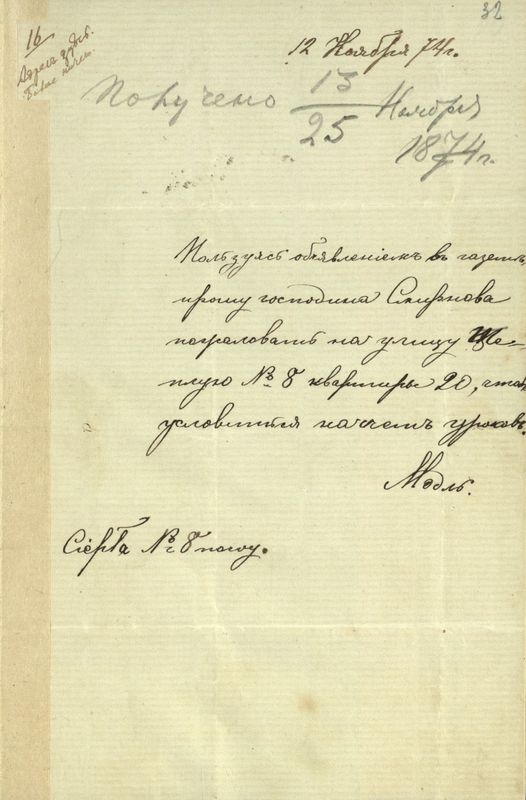 32
16
12 Ноября 74 г.
Получено 13/25 Ноября
1874 г.
Пользуясь объявленіемъ въ газетѣ,
прошу господина Смирнова
пожаловать на улицу Те-
плую № 8 квартиры 20, чтобъ
условиться на счетъ уроковъ.
№ 8